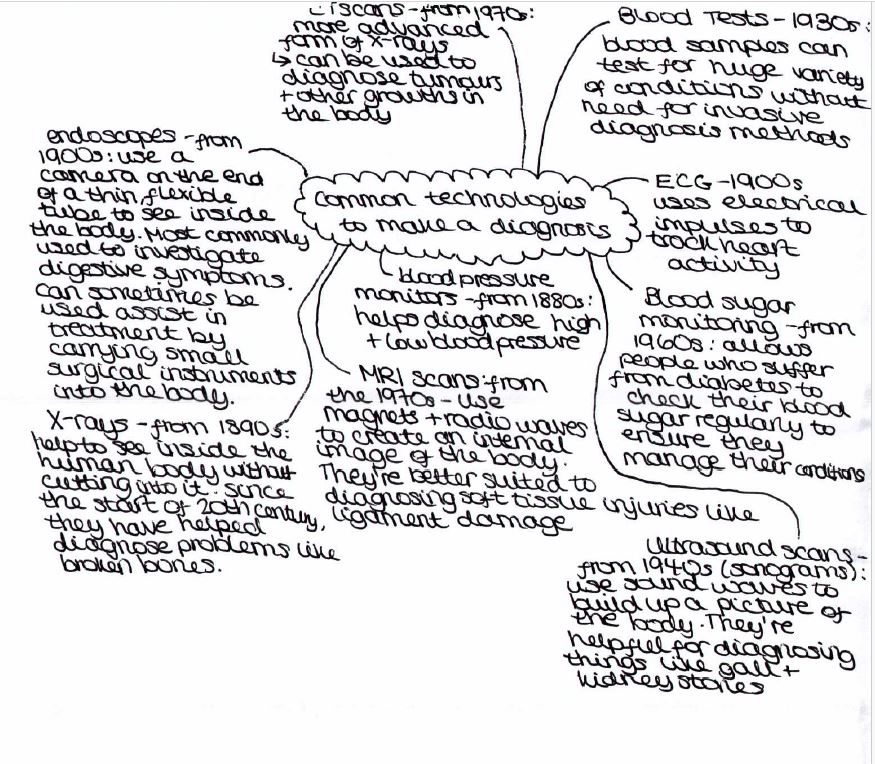 CT scans - from 1970s:
more advanced
form of X-rays
↳ can be used to
diagnose tumours
+ other growths in
the body
Blood Tests - 1930s:
blood samples can
test for huge variety
of conditions without
need for invasive
diagnosis methods
endoscopes - from
1900s: use a
camera on the end
of a thin, flexible
tube to see inside
the body. Most commonly
used to investigate
digestive symptoms.
can sometimes be
used assist in
treatment by
carrying small
surgical instruments
into the body.
Common technologies
to make a diagnosis
ECG - 1900s
uses electrical
impulses to
track heart
activity
blood pressure
monitors - from 1880s:
helps diagnose high
+ low blood pressure
Blood sugar
monitoring - from
1960s: allows
people who suffer
from diabetes to
check their blood
sugar regularly to
ensure they
manage their conditions
MRI scans: from
the 1970s - use
magnets + radio waves
to create an internal
image of the body.
They're better suited to
diagnosing soft tissue injuries like
ligament damage
X-rays - from 1890s:
help to see inside the
human body without
cutting into it. since
the start of 20th century,
they have helped
diagnose problems like
broken bones.
Ultrasound scans -
from 1940s (sonograms):
use sound waves to
build up a picture of
the body. They're
helpful for diagnosing
things like gall +
kidney stones